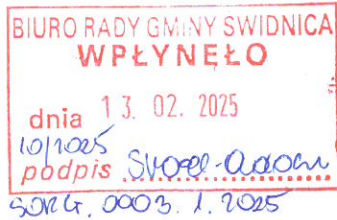 BIURO RADY GMINY SWIDNICA
WPŁYNĘŁO
dnia 13. 02. 2025
10/2025
podpis
SORG. 0003. 1. 2025